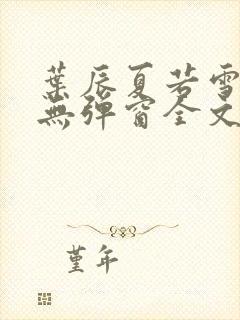 葉辰夏若雪
無彈窗全文
堇年